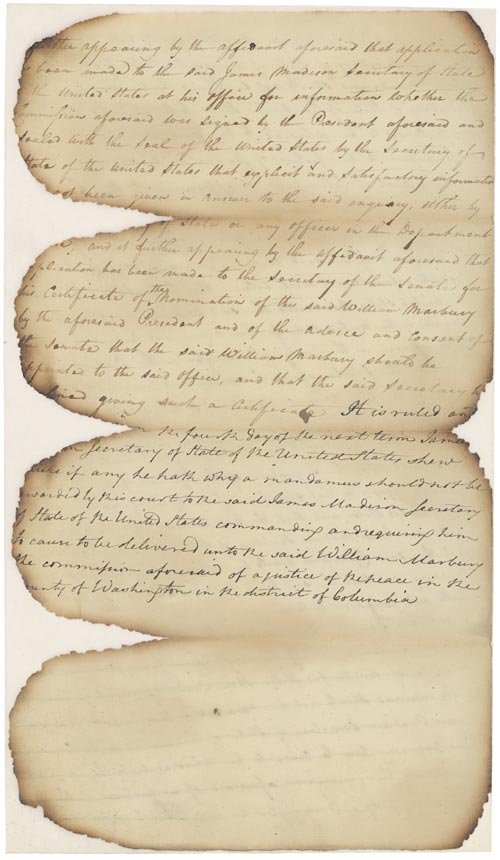 appearing by the affidavit aforesaid that application
been made to the said James Madison Secretary of State
the United States at his office for information whether the
Commission aforesaid was signed by the President aforesaid and
Sealed with the Seal of the United States by the Secretary of
State of the United States that explicit and Satisfactory information
been given in answer to the said inquiry, either by
of State or any officer in the Department
and it further appearing by the affidavit aforesaid that
plication has been made to the Secretary of the Senate for
his Certificate of the Nomination of the said William Marbury
by the aforesaid President and of the advice and consent of
the Senate that the said William Marbury should be
to the said office, and that the said Secretary
giving such a Certificate It is ruled
the fourth day of the next term James
Secretary of State of the United States shew
cause if any he hath why a mandamus should not be
awarded by this court to the said James Madison Secretary
of State of the United States commanding and requiring him
to cause to be delivered unto the said William Marbury
the commission aforesaid of a justice of the peace in the
county of Washington in the district of Columbia